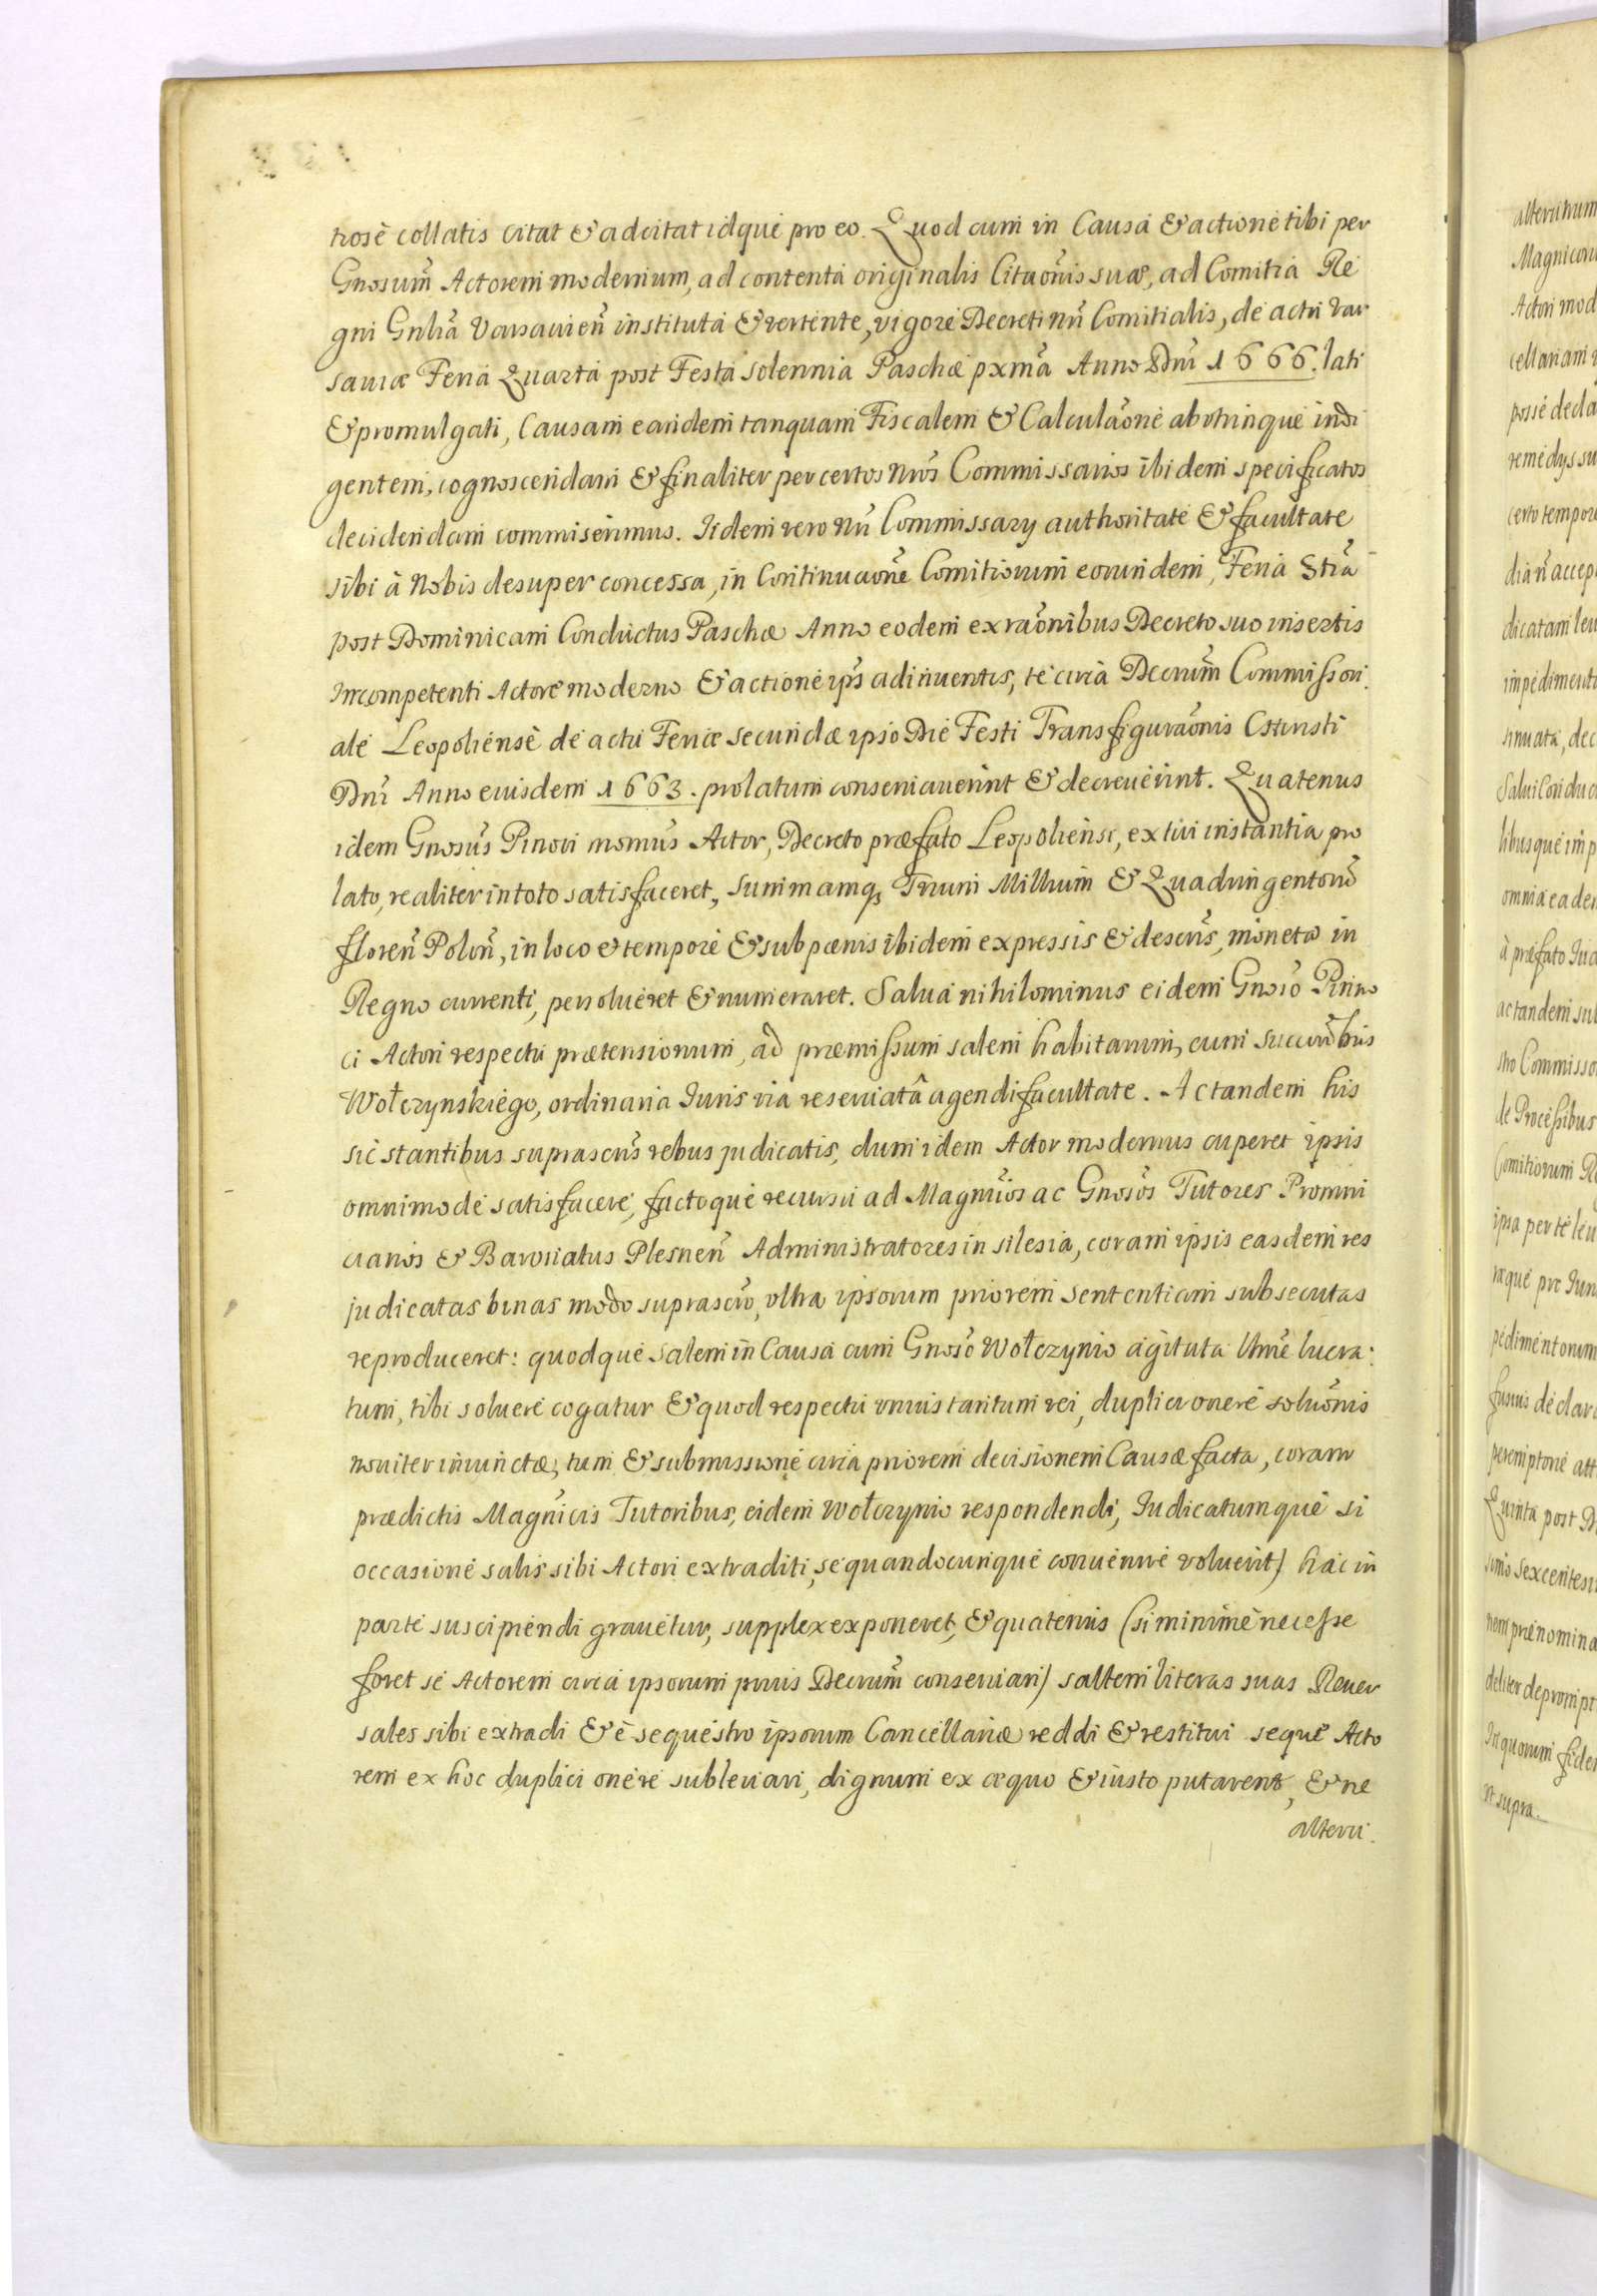 trosè collatis citat & adcitat idque pro eo. Quod cum in Causa & actione tibi per
Gnosum Actorem modernum, ad contenta originalis Citaōnis suæ, ad Comitia Re
gni Gnlia Varsavien̄ instituta & vertente, vigore Decreti nri Comitialis, de actu Var
saviæ Feria Quarta post Festa solennia Paschæ pxma Anno Dni 1666. lati
& promulgati, Causam eandem tanquam Fiscalem & Calculaōne ab utrinque indi
gentem, cognoscendam & finaliter per certos nros Commissarios ibidem specificatos
decidendam commiserimus. Iidem vero nri Commissary authoritate & facultate
sibi à Nobis desuper concessa, in Continuaōne Comitiorum eorundem, Feria 5tia
post Dominicam Conductus Paschæ Anno eodem ex raōnibus Decreto suo insertis
Incompetenti Actore moderno & actione ipsi adinventis, te circa Decrum Commissori
ale Leopoliense de actu Feriæ secundæ ipso Die Festi Transfiguraōnis Christi
Dni Anno eiusdem 1663. prolatum conservaverint & decreverint. Quatenus
idem Gnosus Pinoci nomus Actor, Decreto præfato Leopoliensi, ex tui instantia pro
lato, realiter in toto satisfaceret, summamq; Trium Millium & Quadringentorū
floren̄ Polon̄, in loco & tempore & sub pænis ibidem expressis & descris, moneta in
Regno currenti, persolveret & numeraret. Salva nihilominus eidem Gnoso Pinno
ci Actori respectu prætensionum, ad præmissum salem habitarum, cum succuribus
Wołczynskiego, ordinaria Iuris via reservatâ agendi facultate. Ac tandem his
sic stantibus suprascris rebus judicatis, dum idem Actor modernus cuperet ipsis
omnimode satisfacere, factoque recursu ad Magnicos ac Gnosos Tutores Promni
cianos & Baronatus Plesnen̄ Administratores in silesia, coram ipsis easdem res
judicatas binas modo suprascro, ultra ipsorum priorem sententiam subsecutas
reproduceret: quodque salem in Causa cum Gnoso Wołczynio agitata lucra:
tum, tibi solvere cogatur & quod respectu unius tantum rei, duplici onere soluōnis
noviter iniunctæ, tum & submissione circa priorem decisionem Causæ facta, coram
prædictis Magnicis Tutoribus, eidem Wołczynio respondendi, Iudicatumque si
occasione salis sibi Actori extraditi, se quandocunque convenire voluerit) hac in
parte suscipiendi gravetur, supplex exponeret, & quatenus (si minime necesse
foret se Actorem circa ipsorum prius Decrum conservari) saltem literas suas Rever
sales sibi extradi & è sequestro ipsorum Cancellariæ reddi & restitui seque Acto
rem ex hoc duplici onere sublevari, dignum ex æquo & iusto putarent, & ne
alteru.